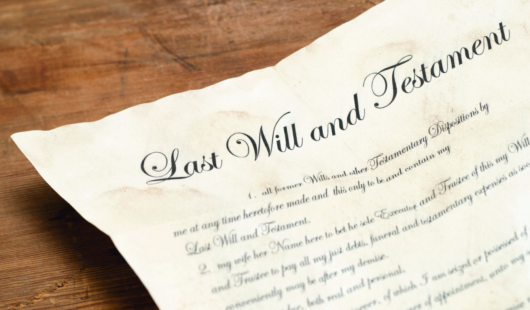 Last Will and Testament
1. all former Wills and other Testamentary Dispositions by
me at any time heretofore made and this only to be and contain my
Last Will and Testament.
2. my wife her Name here to be he sole Executor and Trustee of this my Will
and Trustee to pay all my just debts, funeral and testamentary expenses as soon
conveniently may be after my demise.
both real and personal.
of which I am seized or possessed of
of appointment,